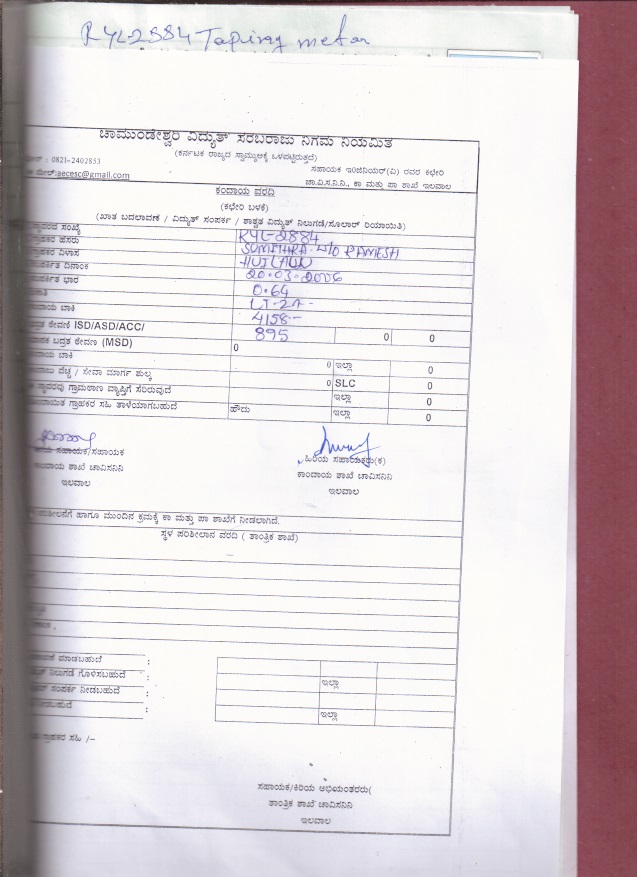 RYL-2884 Taping meter
ಚಾಮುಂಡೇಶ್ವರಿ ವಿದ್ಯುತ್ ಸರಬರಾಜು ನಿಗಮ ನಿಯಮಿತ
(ಕರ್ನಾಟಕ ರಾಜ್ಯದ ಸ್ವಾಮ್ಯಕ್ಕೆ ಒಳಪಟ್ಟಿರುತ್ತದೆ)
: 0821-2402853
ಸಹಾಯಕ ಇಂಜಿನಿಯರ್(ವಿ) ರವರ ಕಛೇರಿ
ಮೇಲ್:aecesc@gmail.com
ಚಾ.ವಿ.ಸ.ನಿ.ನಿ., ಕಾ ಮತ್ತು ಪಾ ಶಾಖೆ ಇಲವಾಲ
ಕಂದಾಯ ವರದಿ
(ಕಛೇರಿ ಬಳಕೆ)
(ಖಾತೆ ಬದಲಾವಣೆ / ವಿದ್ಯುತ್ ಸಂಪರ್ಕ / ಶಾಶ್ವತ ವಿದ್ಯುತ್ ನಿಲುಗಡೆ/ಸೋಲಾರ್ ರಿಯಾಯಿತಿ)
ಸಂಖ್ಯೆ RYL-2884
ಹೆಸರು SUMITHRA W/O RAMESH
ವಿಳಾಸ
ದಿನಾಂಕ 20-03-2006
ಭಾರ 0.64
LT-2A-
ಬಾಕಿ 4158-
ಠೇವಣಿ ISD/ASD/ACC/ 895 0 0
ಭದ್ರತ ಠೇವಣಿ (MSD) 0
ಬಾಕಿ
ವೆಚ್ಚ / ಸೇವಾ ಮಾರ್ಗ ಶುಲ್ಕ 0 ಇಲ್ಲಾ 0
ಸ್ಥಾವರವು ಗ್ರಾಮಠಾಣ ವ್ಯಾಪ್ತಿಗೆ ಸೇರಿರುವುದೆ 0 SLC 0
ಇಲ್ಲಾ 0
ಗ್ರಾಹಕರ ಸಹಿ ತಾಳೆಯಾಗಬಹುದೆ ಹೌದು ಇಲ್ಲಾ 0
ಸಹಾಯಕ/ಸಹಾಯಕ
ಹಿರಿಯ ಸಹಾಯಕರು(ಕ)
ಕಾಂದಾಯ ಶಾಖೆ ಚಾವಿಸನಿನಿ
ಕಾಂದಾಯ ಶಾಖೆ ಚಾವಿಸನಿನಿ
ಇಲವಾಲ
ಇಲವಾಲ
ಹಾಗೂ ಮುಂದಿನ ಕ್ರಮಕ್ಕೆ ಕಾ ಮತ್ತು ಪಾ ಶಾಖೆಗೆ ನೀಡಲಾಗಿದೆ.
ಸ್ಥಳ ಪರಿಶೀಲಾನ ವರದಿ ( ತಾಂತ್ರಿಕ ಶಾಖೆ)
ಮಾಡಬಹುದೆ :
ನಿಲುಗಡೆ ಗೊಳಿಸಬಹುದೆ : ಇಲ್ಲಾ
ಸಂಪರ್ಕ ನೀಡಬಹುದೆ :
: ಇಲ್ಲಾ
ಗ್ರಾಹಕರ ಸಹಿ /-
ಸಹಾಯಕ/ಕಿರಿಯ ಅಭಿಯಂತರರು(
ತಾಂತ್ರಿಕ ಶಾಖೆ ಚಾವಿಸನಿನಿ
ಇಲವಾಲ